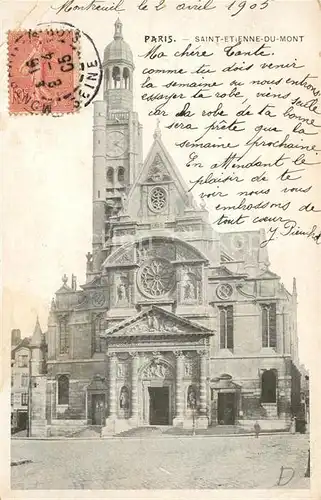 Montreuil le 2 avril 1905
PARIS. — SAINT-ETIENNE-DU-MONT
Ma chère Tante.
comme tu dois venir
la semaine ou nous entrons
essayer la robe viens seulle
car la robe de ta bonne
sera prête que la
semaine prochaine
En attendant le
plaisir de te
voir nous vous
embrassons de
tout cœur
SEINE
D